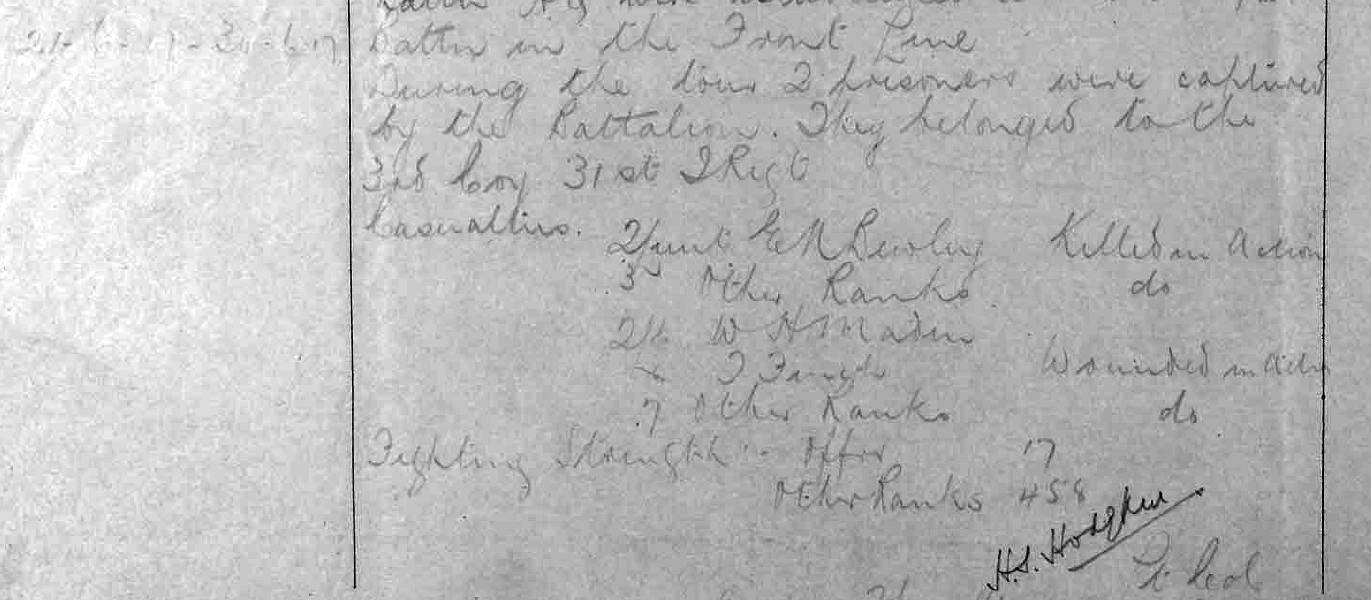 21-6-17 - 30-6-17 Battn in the Front Line
During the tour 2 prisoners were captured
by the Battalion. They belonged to the
3rd Coy 31st I Regt
Casualties. 2/Lieut Killed in Action
3 Other Ranks do
2/Lt W H
Wounded in Action
7 Other Ranks do
Fighting Strength :- Offrs 17
Other Ranks 458
H.S. Hodgkin
Lt Col